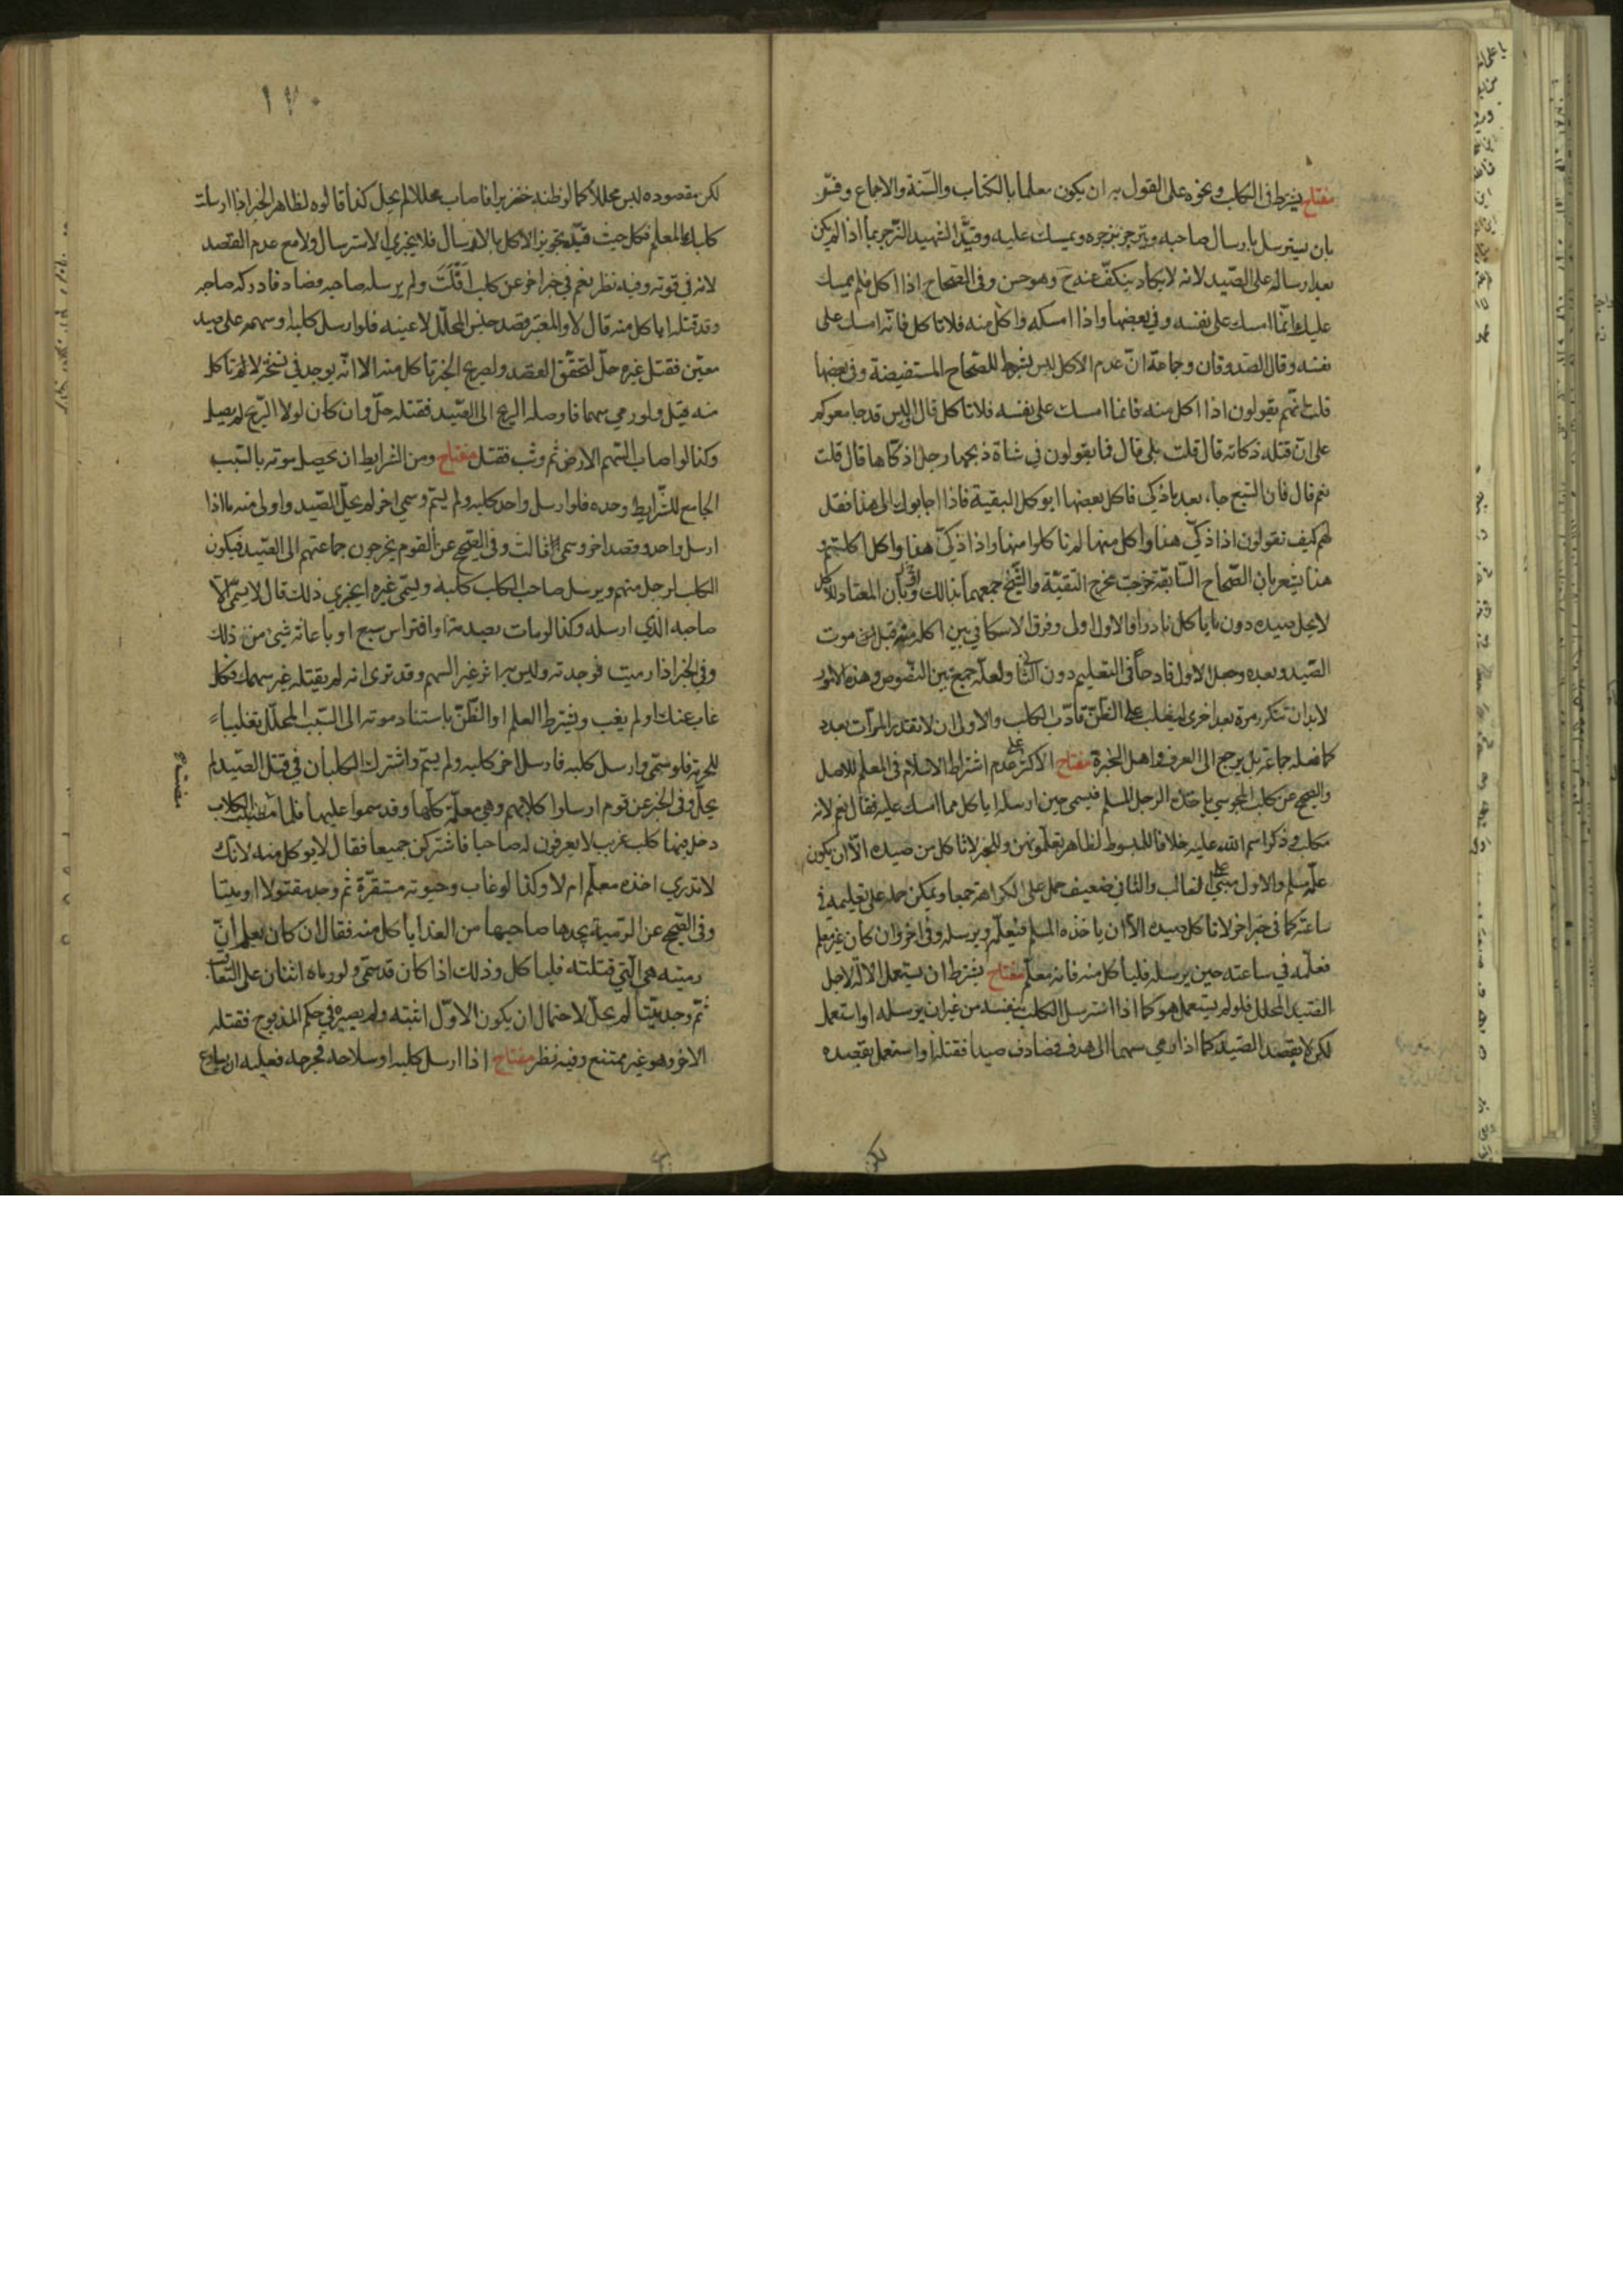 مفتاح يشترط في الكلب ونحوه على القول به ان يكون معلما بالكتاب والسنة والاجماع وفسّر
بان يسترسل بارسال صاحبه وينزجر بزجره ويمسك عليه وقيّد الشهيد الزجر بما اذا لم يكن
بعد ارساله على الصّيد لانه لا يكاد ينكفّ عنه ح وهو حسن وفي الصحاح اذا اكل فلم يمسك
عليك وانّما امسك على نفسه وفي بعضها واذا امسكه واكل منه فلا تاكل فانّه امسك على
نفسه وقال الصّدوقان وجماعة انّ عدم الاكل ليس بشرط للصّحاح المستفيضة وفي بعضها
قلت انّهم يقولون اذا اكل منه فانما امسك على نفسه فلا تاكل قال او ليس قد جامعوكم
على انّ قتله ذكاته قال قلت بلى قال فما يقولون في شاة ذبحها رجل اذكّاها قال قلت
نعم قال فان السّبع جاء بعد ما ذكي فاكل بعضها ايوكل البقية فاذا اجابوك الى هذا فقل
لهم كيف تقولون اذا ذكّى هذا واكل منها لم تاكلوا منها واذا ذكّى هذا واكل اكلتم و
هذا يشعر بان الصّحاح السّابقة خرجت مخرج التقيّة والشّيخ جمعهما بذلك وبان المعتاد للاكل
لا يحل صيده دون ما ياكل نادرا والاول اولى وفرق الاسكافي بين اكله منه قبل موت
الصّيد وبعده وجعل الاول قادحا في التعليم دون الثاني ولعلّه جمع بين النّصوص وهذه الامور
لابد ان تتكرر مرة بعد اخرى ليغلب على الظّنّ تادّب الكلب والاولى ان لا تقدّر المرّات بعدد
كما فعله جماعة بل يرجع الى العرف واهل الخبرة مفتاح الاكثر على عدم اشتراط الاسلام في المعلم للاصل
والصحيح عن كلب المجوسي ياخذه الرجل المسلم فيسمي حين ارسله اياكل مما امسك عليه فقال نعم لانه
مكلب وذكر اسم الله عليه خلافا للمبسوط لظاهر تعلّمونهنّ وللخبر لا تاكل من صيده الّا ان يكون
علّمه مسلم والاول مبنيّ على الغالب والثاني ضعيف حمل على الكراهة جمعا ويمكن حمله على تعليمه في
ساعته كما في خبر اخر لا تاكل صيده الّا ان ياخذه المسلم فيعلّمه ويرسله وفي اخر وان كان غير معلم
فعلّمه في ساعته حين يرسله فلياكل منه فانه معلّم مفتاح يشترط ان يستعمل الالة لاجل
الصّيد المحلل فلو لم يستعمل هو كما اذا استرسل الكلب بنفسه من غير ان يرسله او استعمل
لكن لا بقصد الصّيد كما اذا رمى سهما الى هدف فصادف صيدا فقتله او استعمل بقصده
لكن
١٧٠
لكن مقصوده ليس محللا كما لو ظنه خنزيرا فاصاب محللا لم يحل كذا قالوه لظاهر الخبر اذا ارسلت
كلبك المعلم فكل حيث قيّد تجويز الاكل بالارسال فلا يجزي الاسترسال ولا مع عدم القصد
لانه في قوته وفيه نظر نعم في خبر اخر عن كلب افلت ولم يرسله صاحبه فصاد فادركه صاحبه
وقد قتله اياكل منه قال لا والمعتبر قصد جنس المحلّل لا عينه فلو ارسل كلبه او سهمه على صيد
معيّن فقتل غيره حلّ لتحقّق القصد ولصريح الخبر تاكل منه الا انّه يوجد في نسخة لا تاكل
منه قيل ولو رمى سهما فاوصله الريح الى الصّيد فقتله حلّ وان كان لولا الرّيح لم يصل
وكذا لو اصاب السّهم الارض ثم وثب فقتل مفتاح ومن الشرايط ان يحصل موته بالسّبب
الجامع للشّرايط وحده فلو ارسل واحد كلبه ولم يسمّ وسمى اخر لم يحلّ الصّيد واولى منه ما اذا
ارسل واحد وقصد اخر وسمى ثالث وفي الصّحيح عن القوم يخرجون جماعتهم الى الصّيد فيكون
الكلب لرجل منهم ويرسل صاحب الكلب كلبه ويسمّى غيره ايجزي ذلك قال لا يسمّي الّا
صاحبه الّذي ارسله وكذا لو مات بصدمته او افتراس سبع او باعانة شيء من ذلك
وفي الخبر اذا رميت فوجدته وليس به اثر غير السهم وقد ترى انه لم يقتله غير سهمك فكل
غاب عنك او لم يغب ويشترط العلم او الظّنّ باستناد موته الى السّبب المحلّل تغليبا
للحرمة فلو سمّى وارسل كلبه فارسل اخر كلبه ولم يسمّ واشترك الكلبان في قتل الصّيد لم
يحلّ وفي الخبر عن قوم ارسلوا كلابهم وهي معلّمة كلّها وقد سموا عليها فلما مضت الكلاب
دخل فيها كلب غريب لا يعرفون له صاحبا فاشتركن جميعا فقال لا يوكل منه لانّك
لا تدري اخذه معلّم ام لا وكذا لو غاب وحيوته مستقرّة ثم وجده مقتولا او ميتا
وفي الصّحيح عن الرّمية يجدها صاحبها من الغد اياكل منه فقال ان كان يعلم انّ
رميته هي الّتي قتلته فلياكل وذلك اذا كان قد سمّى ولو رماه اثنان على التعاقب
ثم وجد ميّتا لم يحلّ لاحتمال ان يكون الاوّل اثبته ولم يصيره في حكم المذبوح فقتله
الاخر وهو غير ممتنع وفيه نظر مفتاح اذا ارسل كلبه او سلاحه فجرحه فعليه ان يسارع
مفتاح